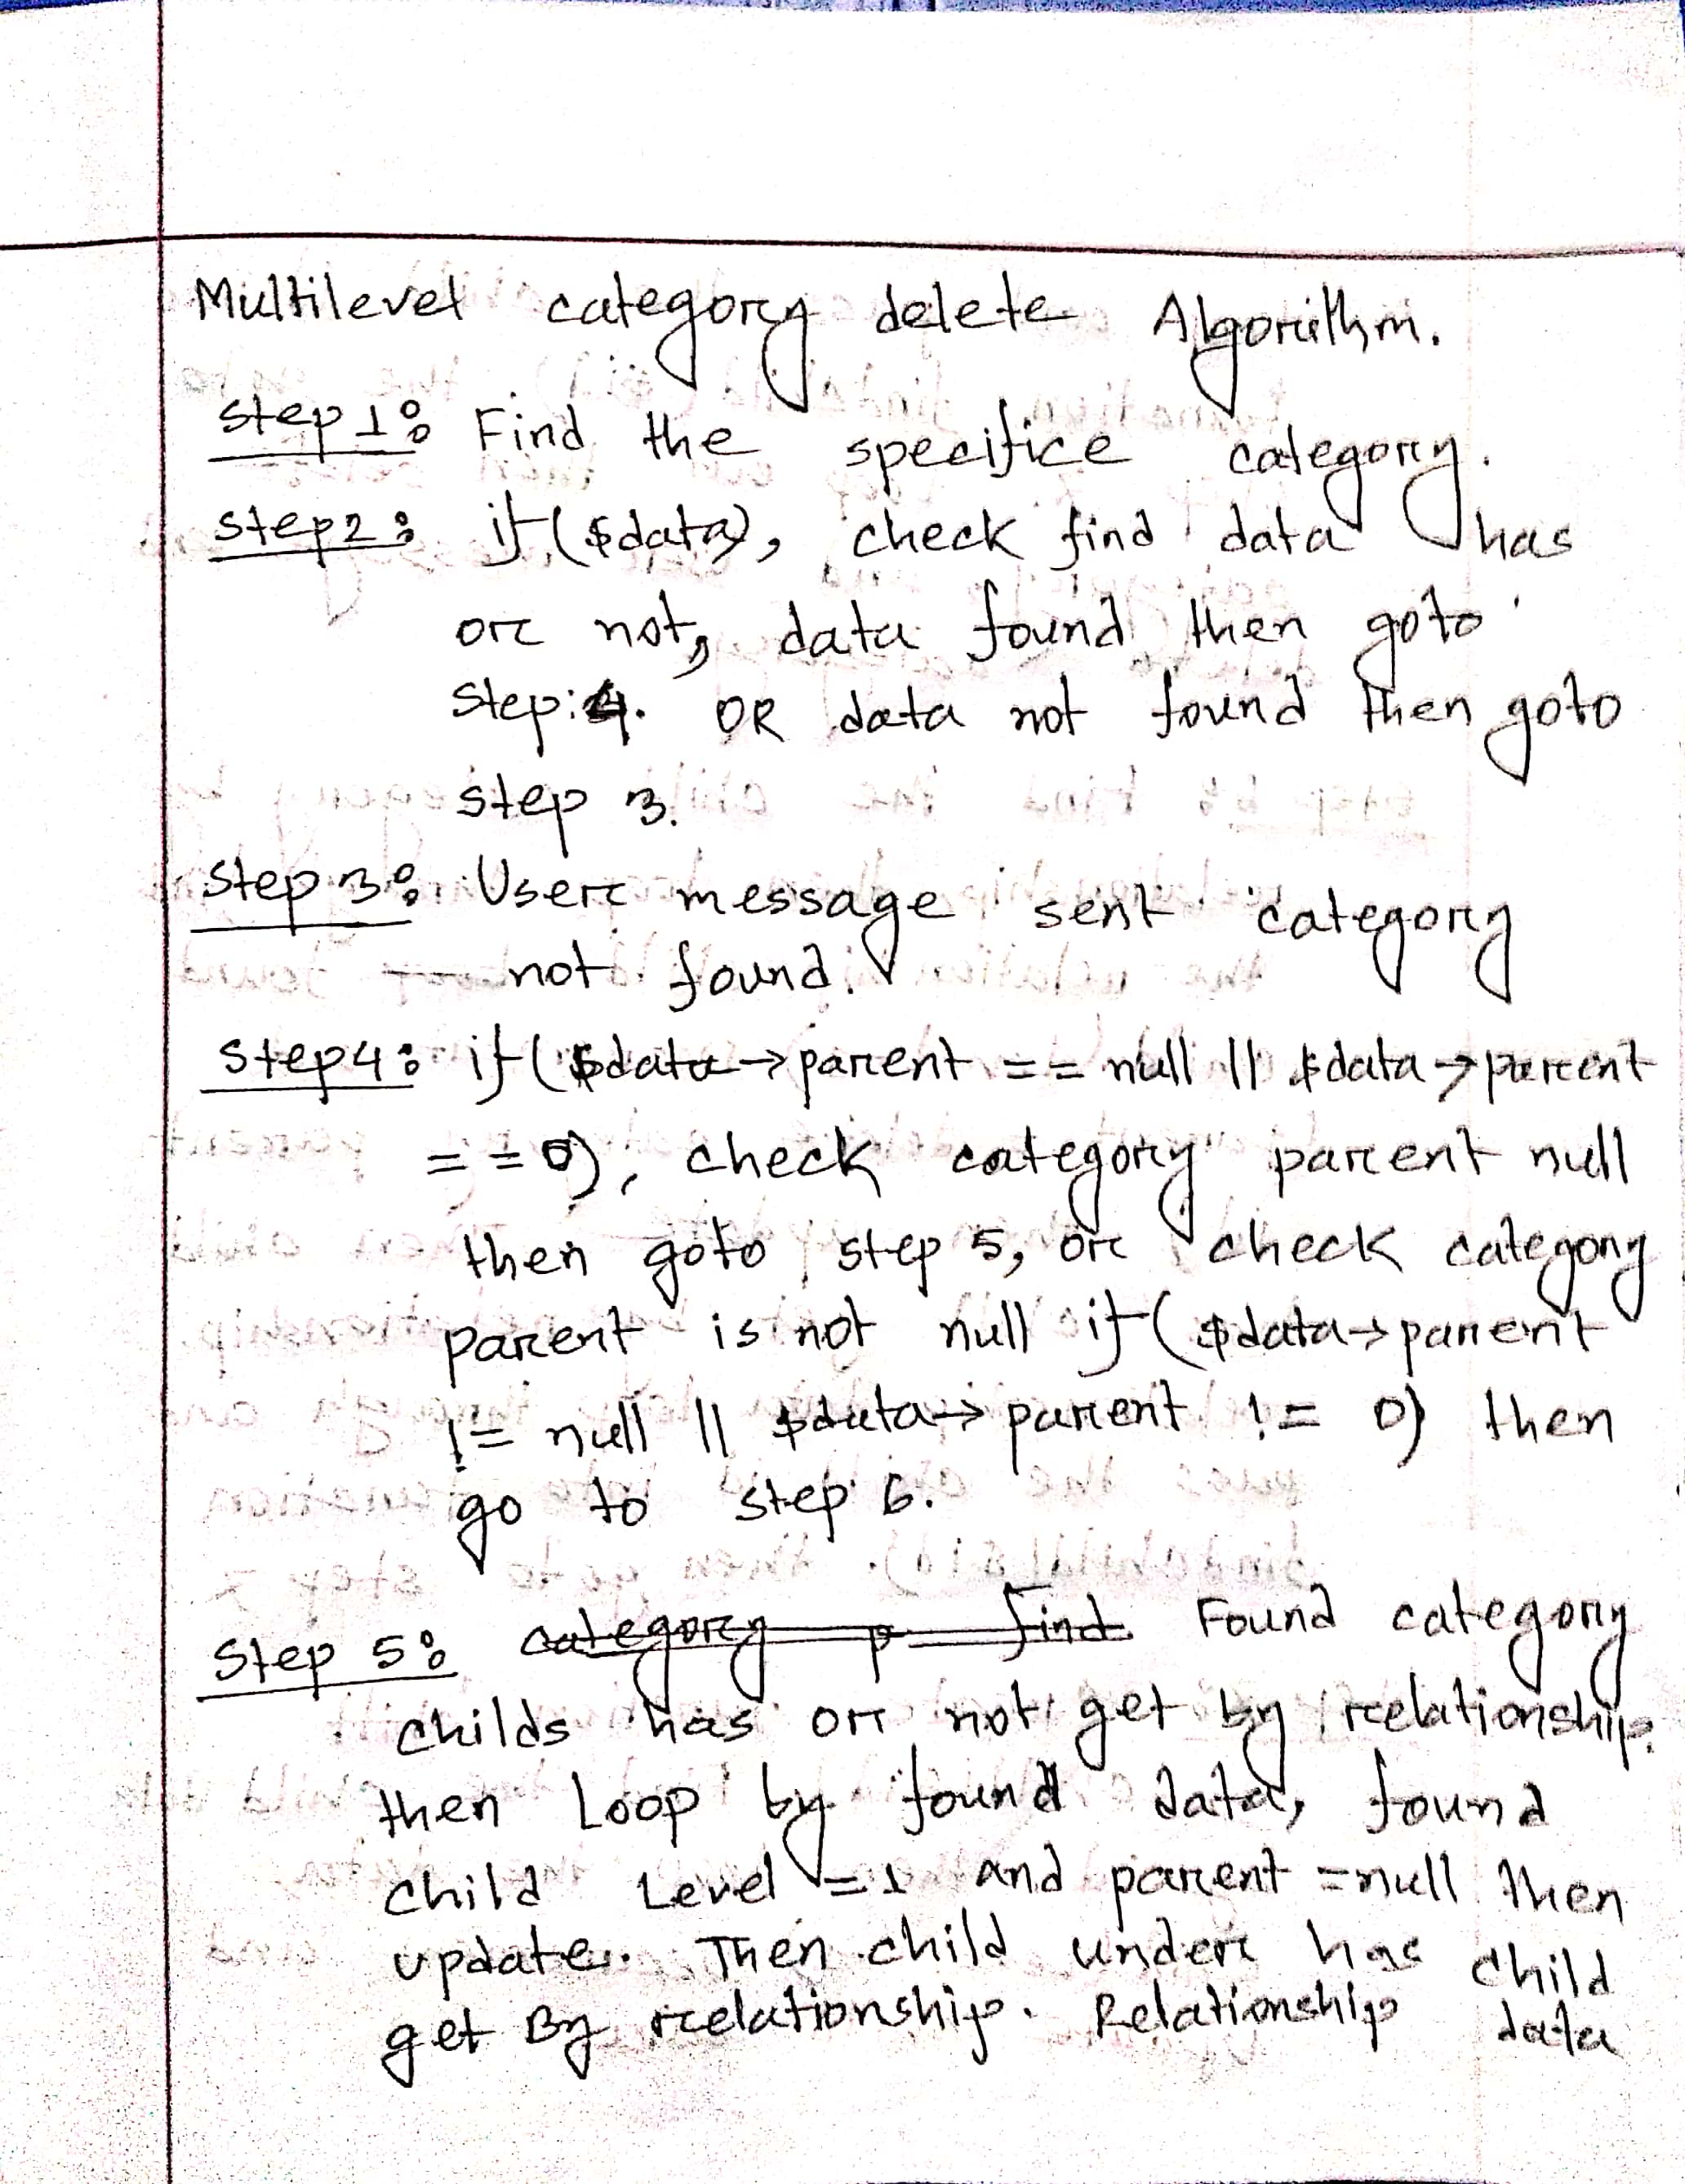 Multilevel category delete Algorithm.
Step 1: Find the specifice category.
Step2: if($data), check find data has
or not, data found then goto
Step:4. OR data not found then goto
step 3.
Step 3: User message sent category
not found.
Step4: if($data→parent == null || $data→parent
==0), check category parent null
then goto step 5, or check category
parent is not null if($data→parent
!= null || $data→parent != 0) then
go to step 6.
Step 5: category p find Found category
childs has or not get by relationship.
then Loop by found data, found
child Level =1 and parent =null then
update. Then child under has child
get By relationship. Relationship data